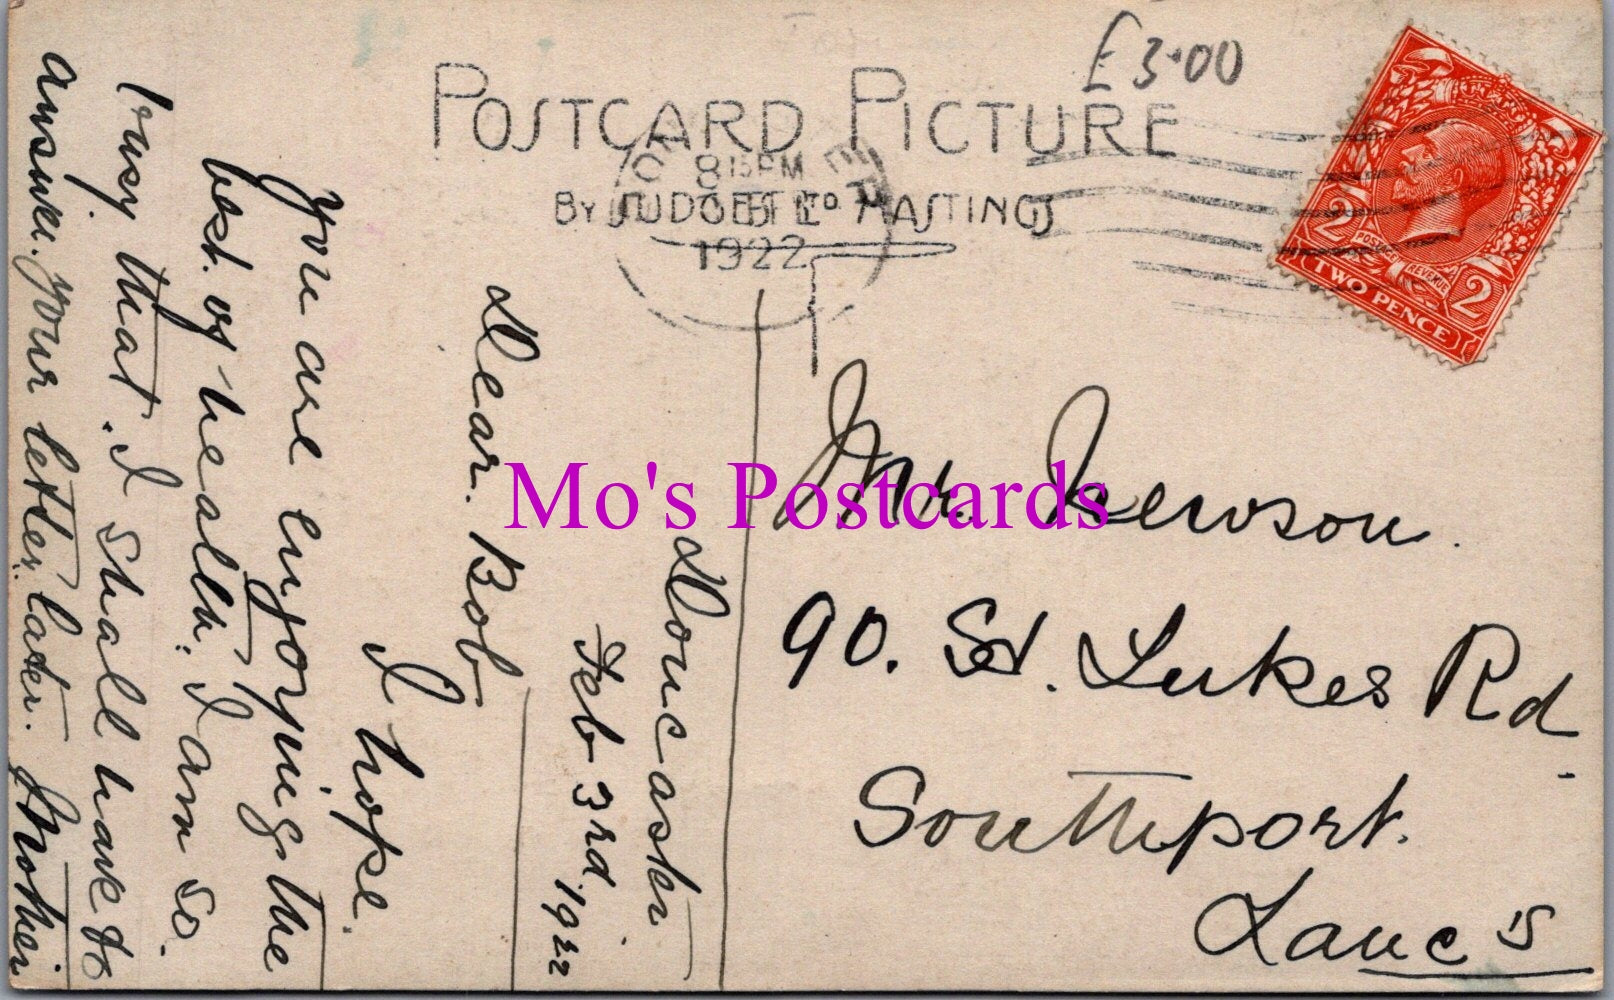 £3.00
POSTCARD PICTURE
BY JUDGES LTD HASTINGS
8 15 PM
1922
2 2
POSTAGE REVENUE
TWO PENCE
Mo's Postcards
Doncaster
Feb 3rd, 1922
Dear. Bob
I hope.
you are enjoying. the
best. of health. I am so.
busy that. I shall have to
answer. your letter. later. Mother
Mr. Newson.
90. St. Lukes Rd
Southport.
Lancs